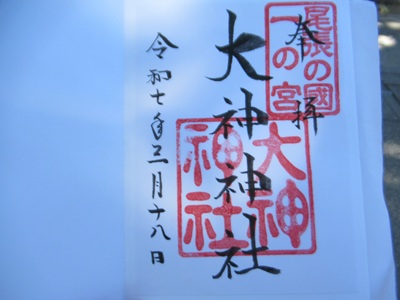 奉拝
尾張の國
一の宮
大神神社
大神
神社
令和七年三月十八日